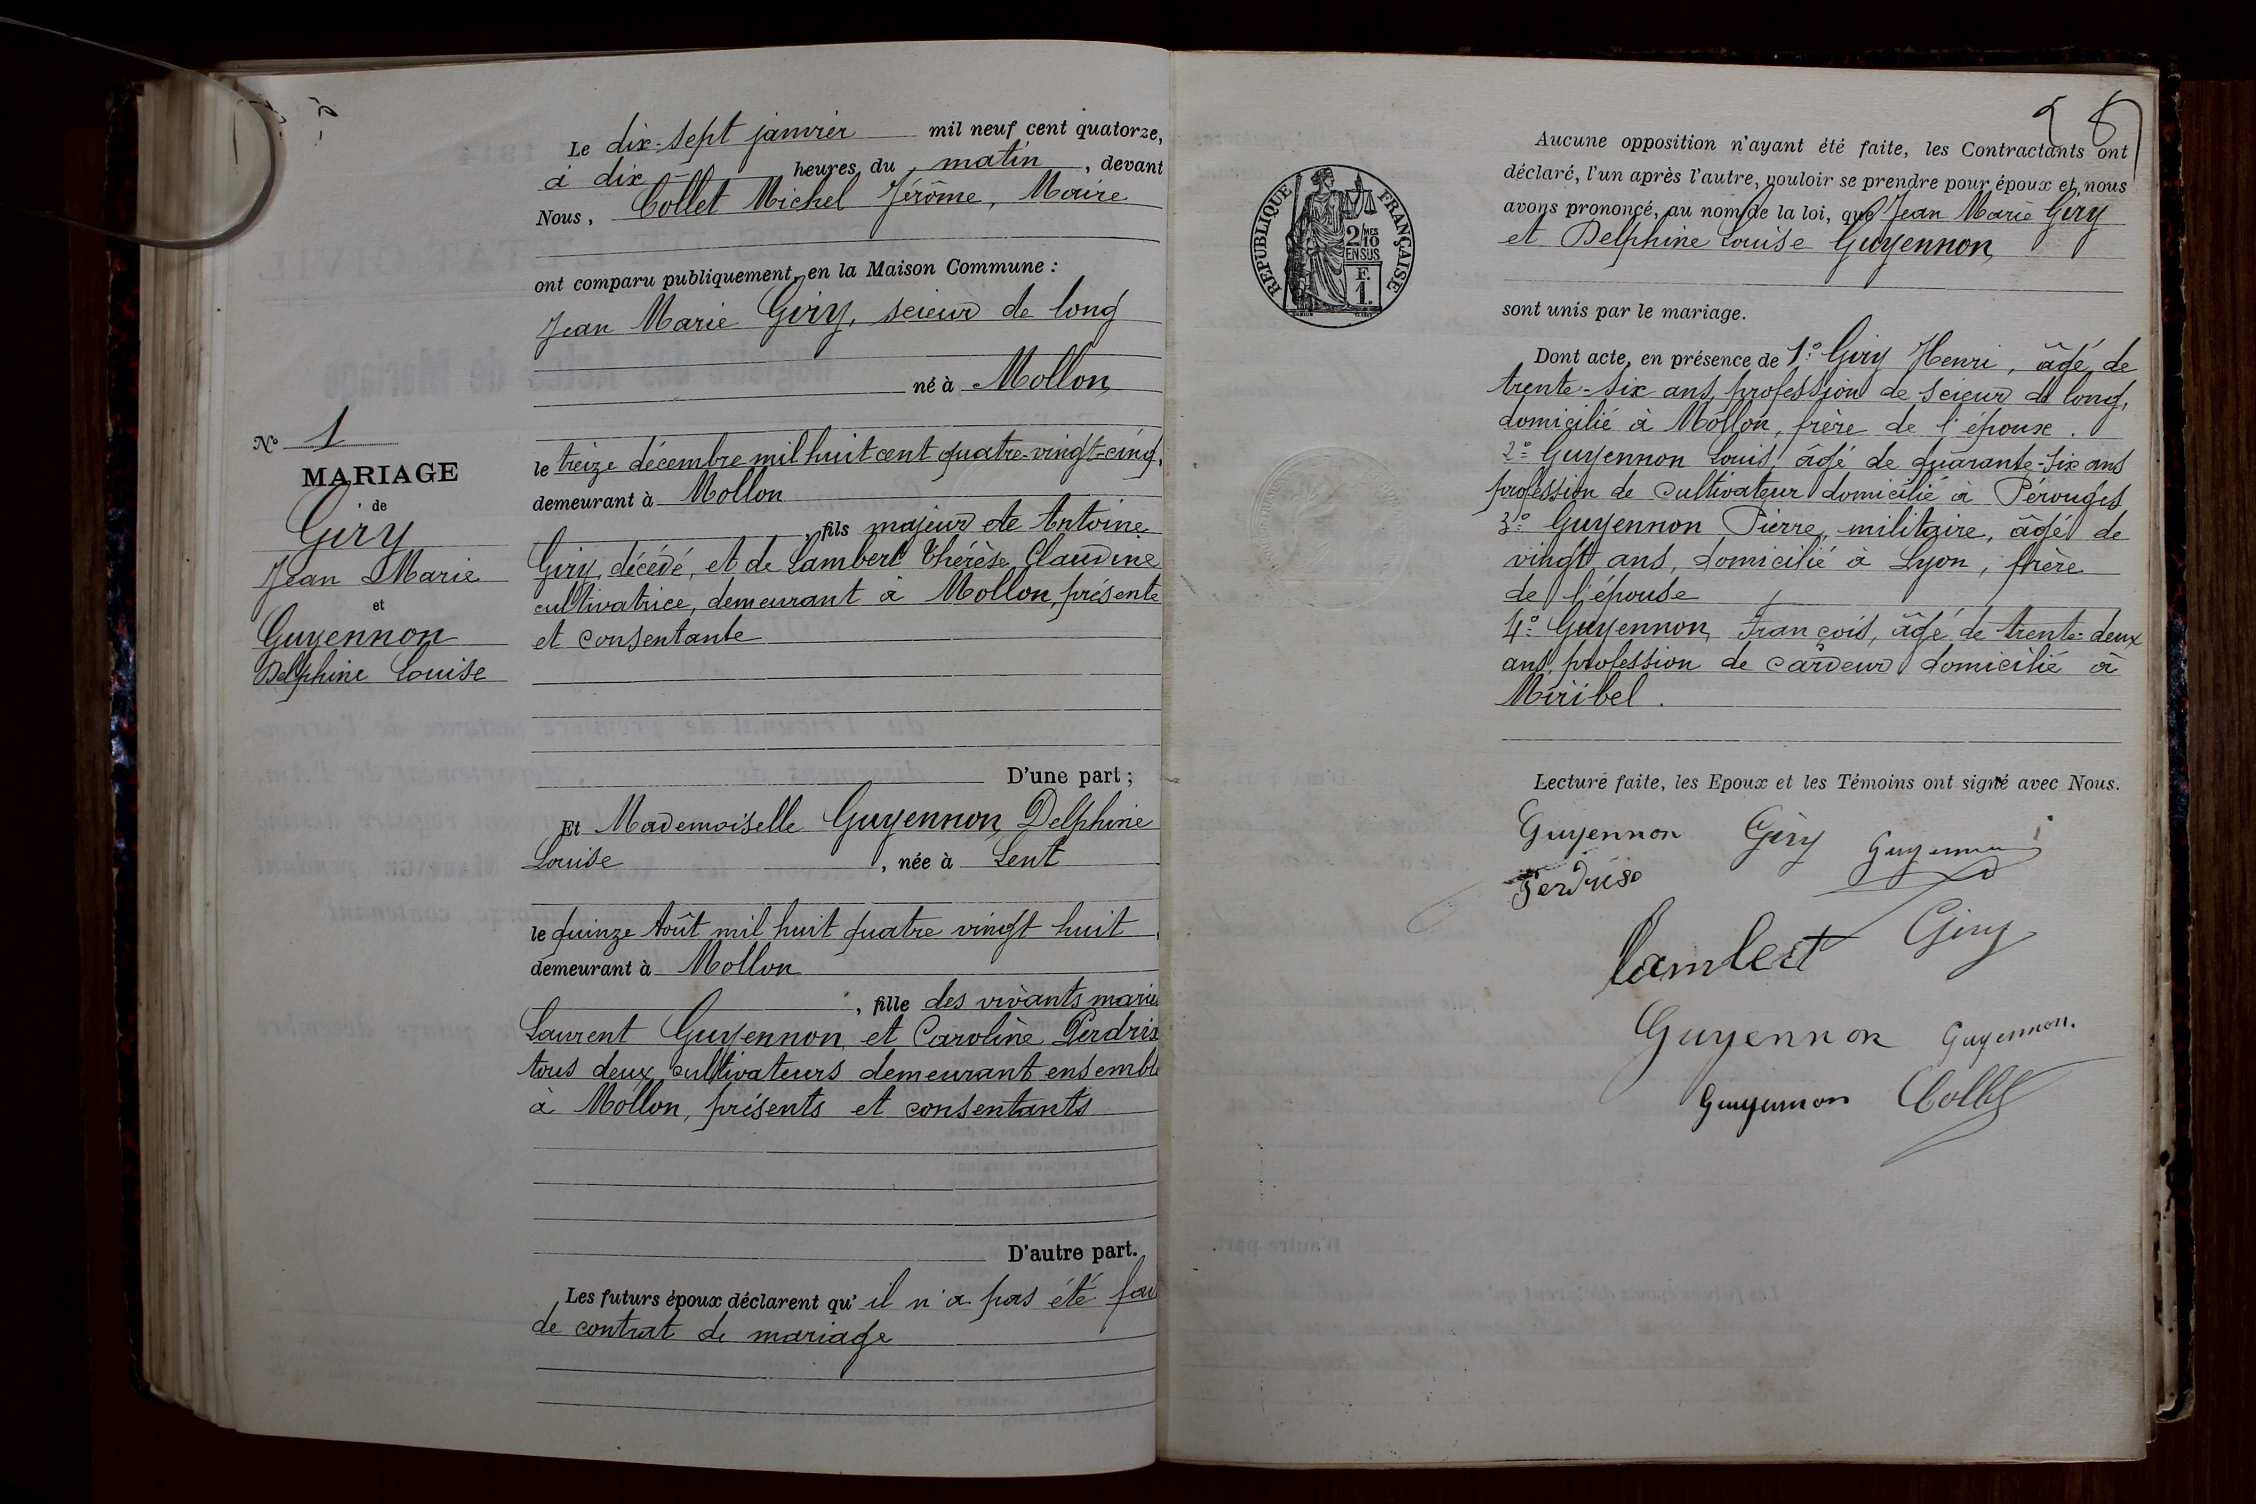 Le dix-sept janvier mil neuf cent quatorze,
à dix heures du matin, devant
Nous, Collet Michel Jérôme, Maire
ont comparu publiquement en la Maison Commune :
Jean Marie Giry, scieur de long
né à Mollon
le treize décembre mil huit cent quatre-vingt-cinq,
demeurant à Mollon
, fils majeur de Antoine
Giry, décédé, et de Lambert Thérèse Claudine
cultivatrice, demeurant à Mollon, présente
et consentante
D'une part ;
Et Mademoiselle Guyennon Delphine
Louise, née à Lent
le quinze Août mil huit quatre vingt huit,
demeurant à Mollon
, fille des vivants marié
Laurent Guyennon et Caroline Perdrix
tous deux cultivateurs demeurant ensemble
à Mollon, présents et consentants
D'autre part.
Les futurs époux déclarent qu'il n'a pas été fai
de contrat de mariage
No 1
MARIAGE
de
Giry
Jean Marie
et
Guyennon
Delphine Louise
RÉPUBLIQUE FRANÇAISE
2/10 MES
EN SUS
F.
1.
Aucune opposition n'ayant été faite, les Contractants ont
déclaré, l'un après l'autre, vouloir se prendre pour époux et nous
avons prononcé, au nom de la loi, que Jean Marie Giry
et Delphine Louise Guyennon
sont unis par le mariage.
Dont acte, en présence de 1º Giry Henri, âgé de
trente-six ans, profession de scieur de long,
domicilié à Mollon, frère de l'époux.
2º Guyennon Louis, âgé de quarante-six ans
profession de cultivateur domicilié à Pérouges
3º Guyennon Pierre, militaire, âgé de
vingt ans, domicilié à Lyon, frère
de l'épouse
4º Guyennon François, âgé de trente-deux
ans, profession de cardeur domicilié à
Miribel.
Lecture faite, les Epoux et les Témoins ont signé avec Nous.
Guyennon Giry Guyennon
Lambert Giry
Guyennon Guyennon.
Guyennon Collet